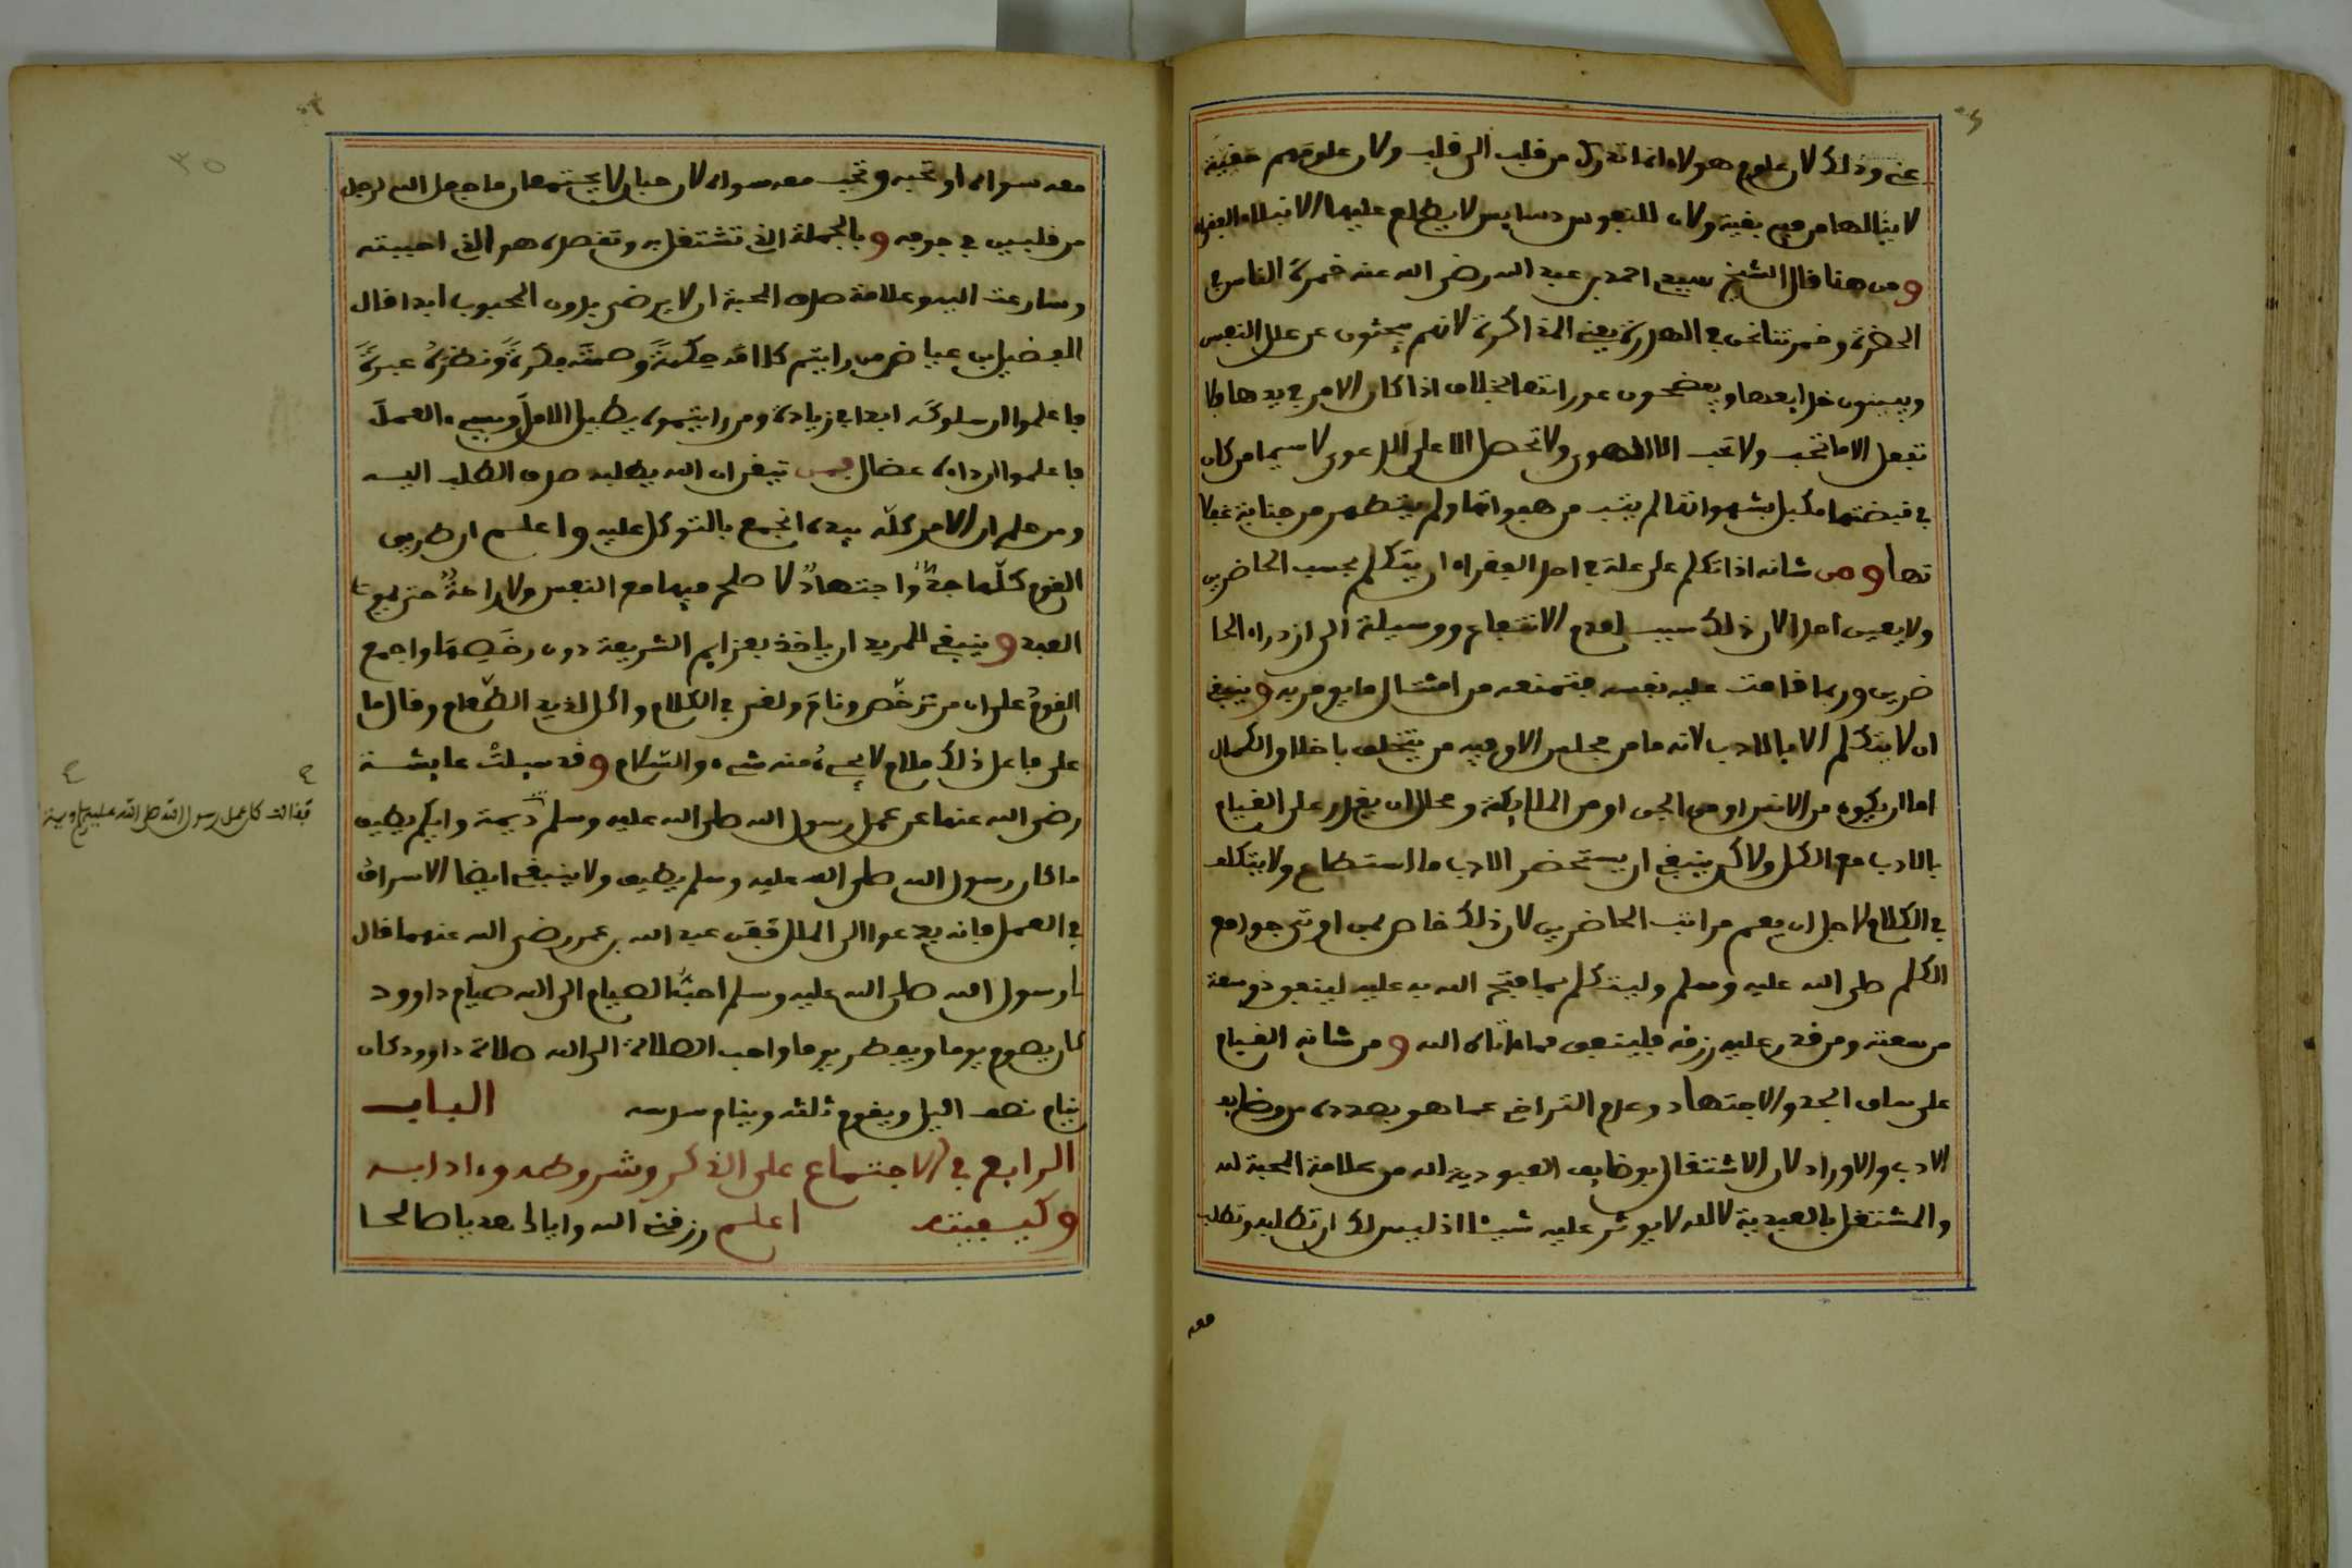 عنى وذلك لان علوم هولاء انما تدرك من قلب الى قلب ولان علومهم حقيقة
لا ينالها من فيه بقية ولان للنفوس دسايس لا يطلع عليها الا النبلاء الفقراء
ومن هنا قال الشيخ سيدى احمد بن عبد الله رضى الله عنه خمرة الناس فى
الحضرة وخمرتنا نحن فى الهدرة يعنى المذاكرة لانهم يبحثون عن علل النفس
ويبينون خدايعها ويفضحون عوراتها بخلاف اذا كان الامر بيدها فلا
تفعل الا ما تحب ولا تحب الا الهوى ولا تحصل الا على الدعوى لا سيما من كان
فى قبضتها مكبل بشهواتها لم يتب من هفواتها ولم يتطهر من جنابة غفلا
تها ومن شانه اذا تكلم على علة فى احد الفقراء ان يتكلم بحسب الحاضرين
ولا يعين احدا لان ذلك سبب لعدم الانتفاع ووسيلة الى ازدراء الحا
ضرين وربما قامت عليه نفسه فتمنعه من امتثال ما يومر به وينبغى
ان لا يتكلم الا بالادب لانه ما من مجلس الا وفيه من يتخلق باخلاق الكمال
اما ان يكون من الانس او من الجن او من الملايكة ومحال ان يقدر على القيام
بالادب مع الكل ولاكن ينبغى ان يستحضر الادب ما استطاع ولا يتكلف
فى الكلام لاجل ان يعم مراتب الحاضرين لان ذلك خاص بمن اوتى جوامع
الكلم صلى الله عليه وسلم وليتكلم بما فتح الله به عليه لينفق ذو سعة
من سعته ومن قدر عليه رزقه فلينفق مما اتاه الله ومن شانه القيام
على ساق الجد والاجتهاد وعدم التراخى عما هو بصدده من وظايف
الادب والاوراد لان الاشتغال بوظايف العبودية لله من علامة المحبة لله
والمشتغل بالعبدية لله لا يوثر عليه شيئا اذ ليس لك ان تطلبه وتطلب
معه
معه سواه او تحبه وتحب معه سواه لان حبان لا يجتمعان ما جعل الله لرجل
من قلبين فى جوفه وبالجملة الذى تشتغل به وتقصده هو الذى احببته
وسارعت اليه وعلامة صدق المحبة ان لا يرضى بدون المحبوب ابدا قال
الفضيل بن عياض من رايتم كلامه حكمة وصمته فكرة ونظره عبرة
فاعلموا ان سلوكه ابدا فى زيادة ومن رايتموه يطيل الامل ويسيء العمل
فاعلموا ان داءه عضال فمن تيقن ان الله يطلبه صدق الطلب اليه
ومن علم ان الامر كله بيده انجمع بالتوكل عليه واعلم ان طريق
القوم كلها جد واجتهاد لا صلح فيها مع النفس ولا راحة حتى يموت
العبد وينبغى للمريد ان ياخذ بعزايم الشريعة دون رخصها واجمع
القوم على ان من ترخص ونام ولغى فى الكلام واكل لذيذ الطعام وقال ما
على فاعل ذلك ملام لا يجيء منه شيء والسلام وقد سيلت عايشة
رضى الله عنها عن عمل رسول الله صلى الله عليه وسلم ديمة وايكم يطيق
فقالت كان عمل رسول الله صلى الله عليه وسلم ديمة
ما كان رسول الله صلى الله عليه وسلم يطيق ولا ينبغى ايضا الاسراف
فى العمل فانه يدعوا الى الملل فعن عبد الله بن عمر رضى الله عنهما قال
يا رسول الله صلى الله عليه وسلم احب الصيام الى الله صيام داوود
كان يصوم يوما ويفطر يوما واحب الصلاة الى الله صلاة داوود كان
ينام نصف اليل ويقوم ثلثه وينام سدسه الباب
الرابع فى الاجتماع على الذكر وشروطه وءادابه
وكيفيته اعلم رزقنى الله واياك بعد يا صالحا